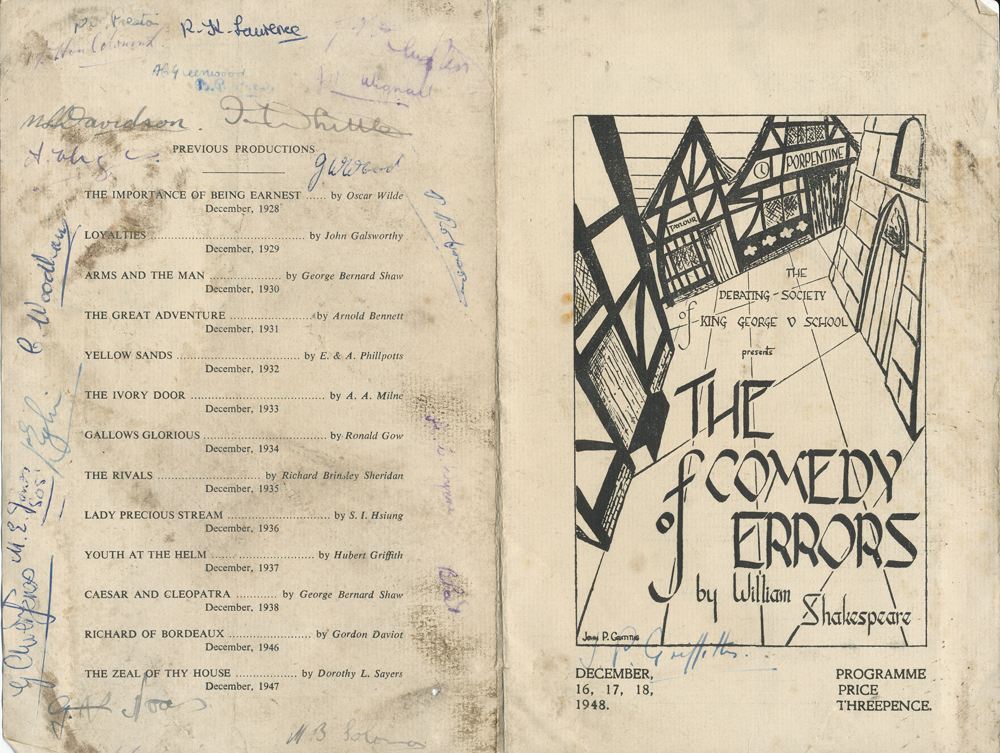 R. H. Lawrence
A B Greenwood
N. Davidson.
PREVIOUS PRODUCTIONS
G W Wood
THE IMPORTANCE OF BEING EARNEST ...... by Oscar Wilde
December, 1928
LOYALTIES ........................................ by John Galsworthy
December, 1929
ARMS AND THE MAN .................... by George Bernard Shaw
December, 1930
THE GREAT ADVENTURE ........................ by Arnold Bennett
December, 1931
YELLOW SANDS ................................ by E. & A. Phillpotts
December, 1932
THE IVORY DOOR ........................................ by A. A. Milne
December, 1933
GALLOWS GLORIOUS .................................. by Ronald Gow
December, 1934
THE RIVALS ........................ by Richard Brinsley Sheridan
December, 1935
LADY PRECIOUS STREAM ............................ by S. I. Hsiung
December, 1936
YOUTH AT THE HELM ............................ by Hubert Griffith
December, 1937
CAESAR AND CLEOPATRA ................ by George Bernard Shaw
December, 1938
RICHARD OF BORDEAUX ........................ by Gordon Daviot
December, 1946
THE ZEAL OF THY HOUSE .................... by Dorothy L. Sayers
December, 1947
M. E. Jones
PORPENTINE
TAYLOUR
THE
DEBATING-SOCIETY
of KING GEORGE V SCHOOL
presents
THE
COMEDY
of ERRORS
by William
Shakespeare
John P. Griffiths
J. P. Griffiths.
DECEMBER,
16, 17, 18,
1948.
PROGRAMME
PRICE
THREEPENCE.